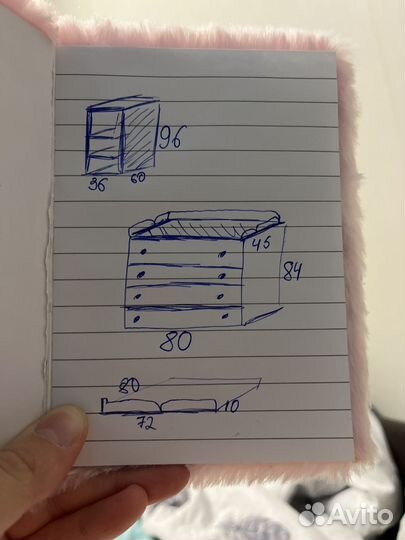 96
96 60
45
84
80
80
10
72
Avito